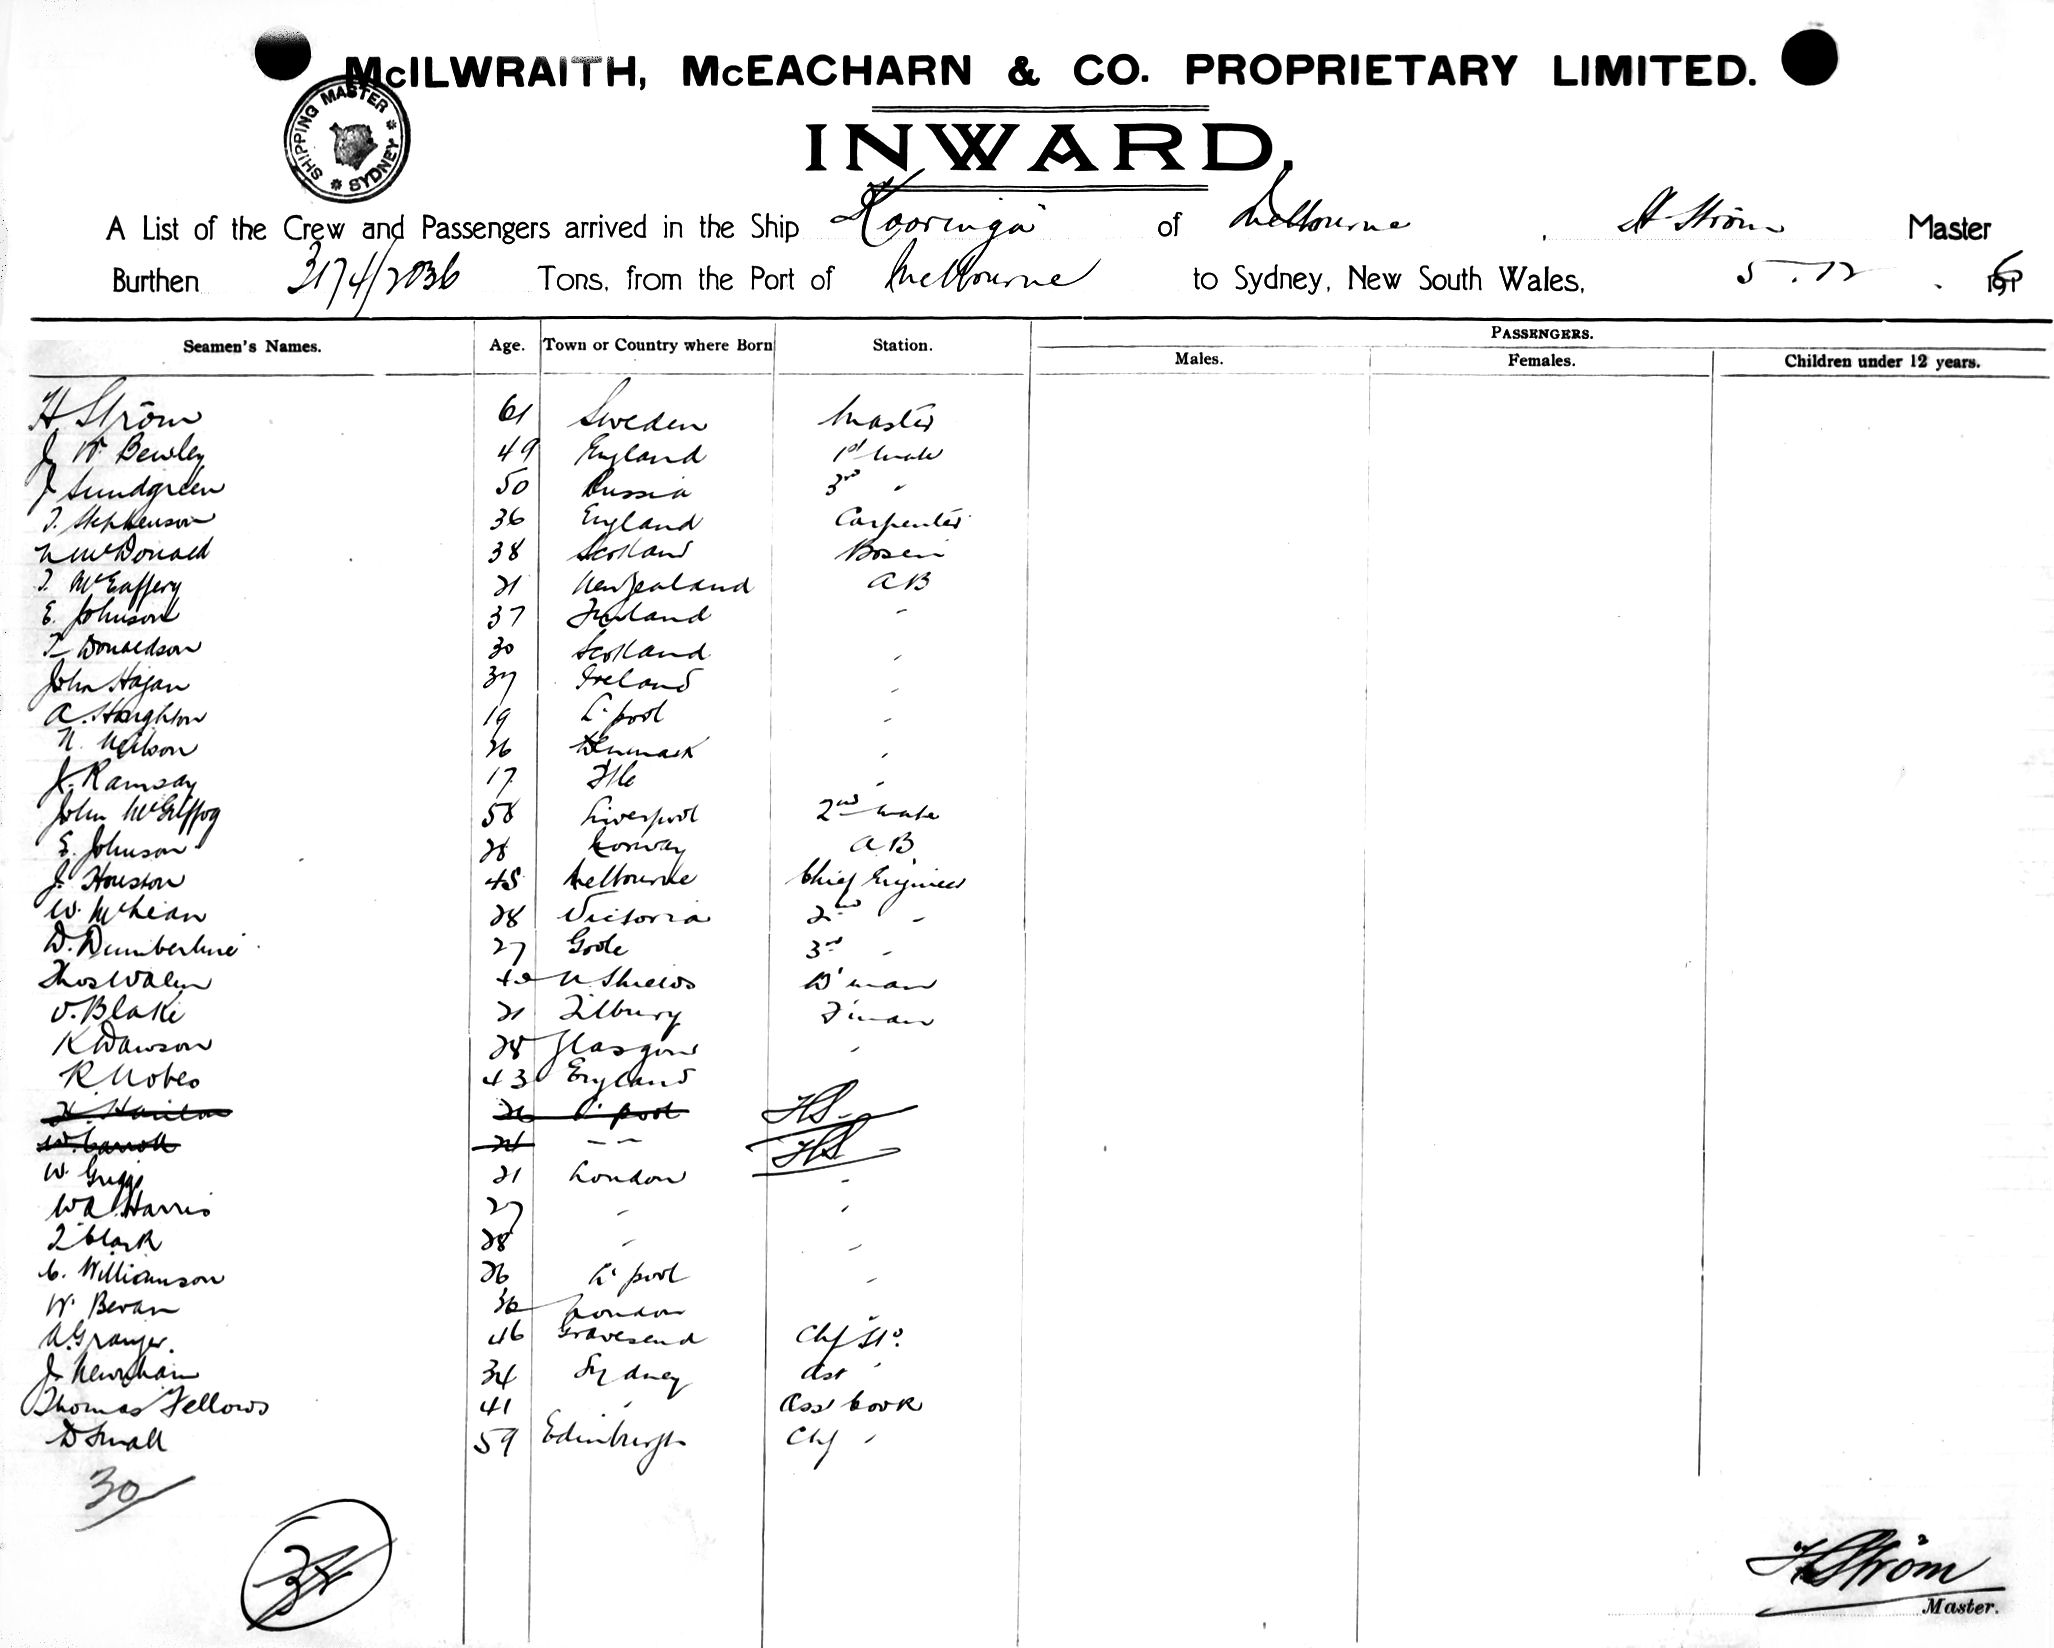 McILWRAITH, McEACHARN & CO. PROPRIETARY LIMITED.
SHIPPING MASTER * SYDNEY *
INWARD.
A List of the Crew and Passengers arrived in the Ship Kooringa of Melbourne H Ström Master
Burthen 3174/2036 Tons, from the Port of Melbourne to Sydney, New South Wales, 5.12.
PASSENGERS.
Seamen's Names. Age. Town or Country where Born Station. Males. Females. Children under 12 years.
H Ström 61 Sweden Master
J W Bewley 49 England 1st Mate
J Sundgreen 50 Russia 3rd "
T. Stephenson 36 England Carpenter
N McDonald 38 Scotland Bosen
T. McCaffery 21 New Zealand AB
E. Johnson 37 Finland "
T Donaldson 30 Scotland "
John Hagan 37 Ireland "
A. Houghton 19 L'pool "
N. Neilson 26 Denmark "
J. Ramsay 17 "
John McGuffog 58 Liverpool 2nd mate
E. Johnson 28 Norway AB
J. Houston 48 Melbourne Chief Engineer
W. McLean 28 Victoria 2nd "
D. 27 Goole 3rd "
Thos Walen 40 N Shields D'man
V. Blake 21 Tilbury F'man
K Dawson 28 Glasgow "
R Nobes 43 England
26 L'pool HS
W. Carroll 21 " " HS
W. Griggs 21 London "
WA Harris 27 " "
T Clark 28 " "
C. Williamson 26 L'pool "
W. Bevan 36 London "
A. Granger. 46 Gravesend Chf Std.
J. Newnham 34 Sydney Ast "
Thomas Fellows 41 " Ass Cook
D Small 59 Edinburgh Chf "
30
32
H Ström
Master.